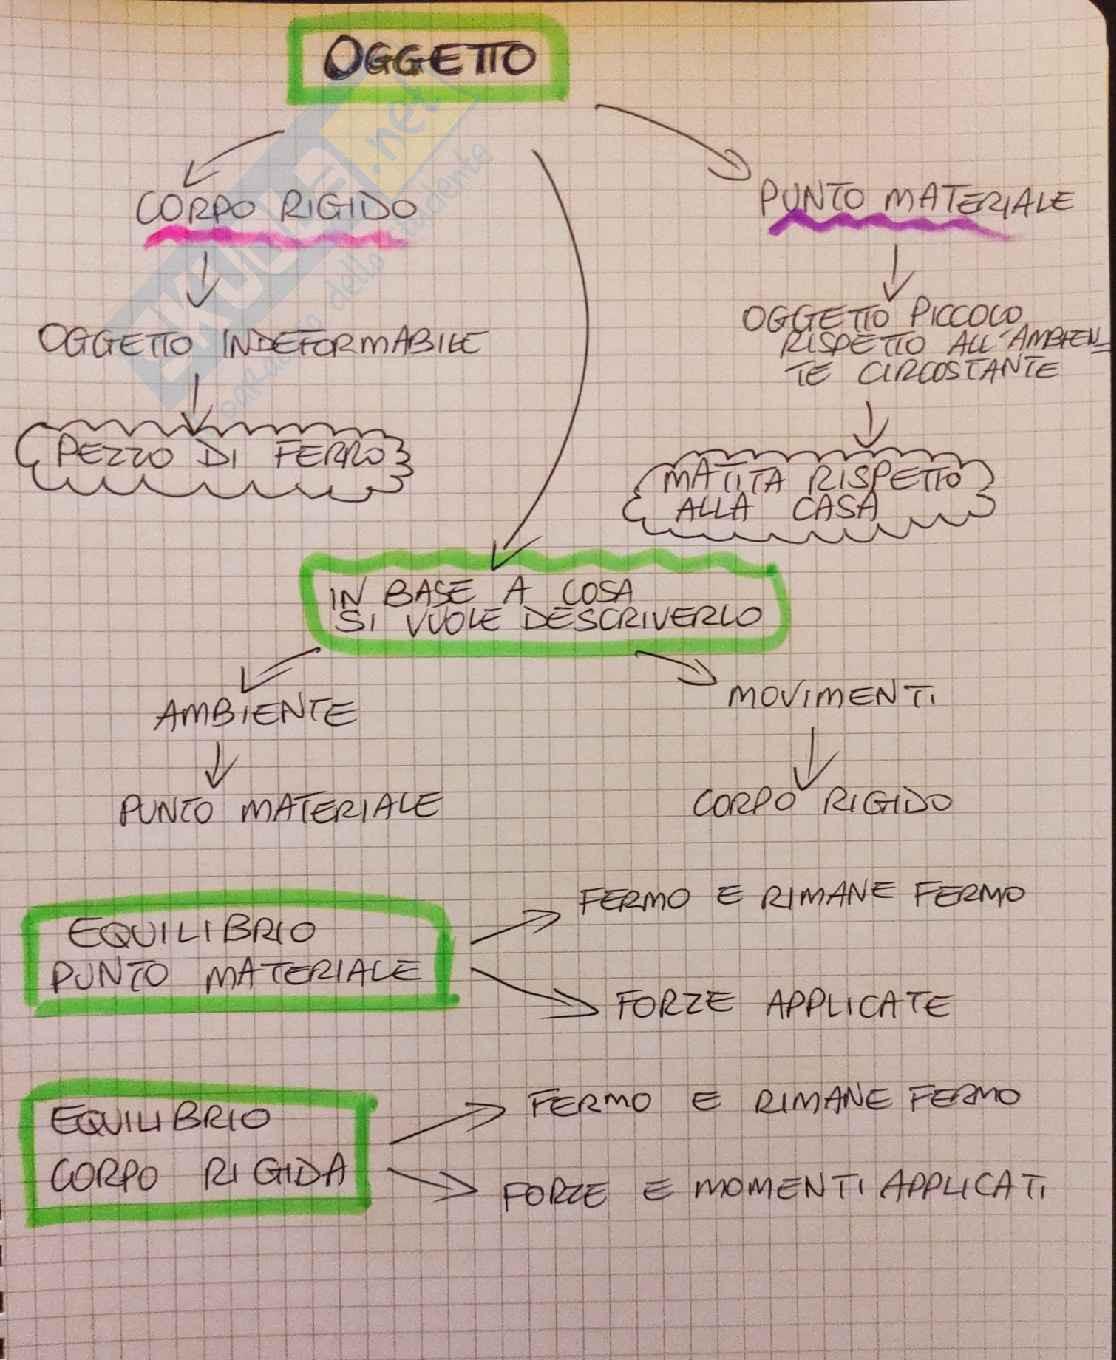 OGGETTO
CORPO RIGIDO
PUNTO MATERIALE
OGGETTO INDEFORMABILE
OGGETTO PICCOLO
RISPETTO ALL'AMBIEN
TE CIRCOSTANTE
PEZZO DI FERRO
MATITA RISPETTO
ALLA CASA
IN BASE A COSA
SI VUOLE DESCRIVERLO
AMBIENTE
MOVIMENTI
PUNTO MATERIALE
CORPO RIGIDO
EQUILIBRIO
PUNTO MATERIALE
FERMO E RIMANE FERMO
FORZE APPLICATE
EQUILIBRIO
CORPO RIGIDA
FERMO E RIMANE FERMO
FORZE E MOMENTI APPLICATI
SKUOLA.net